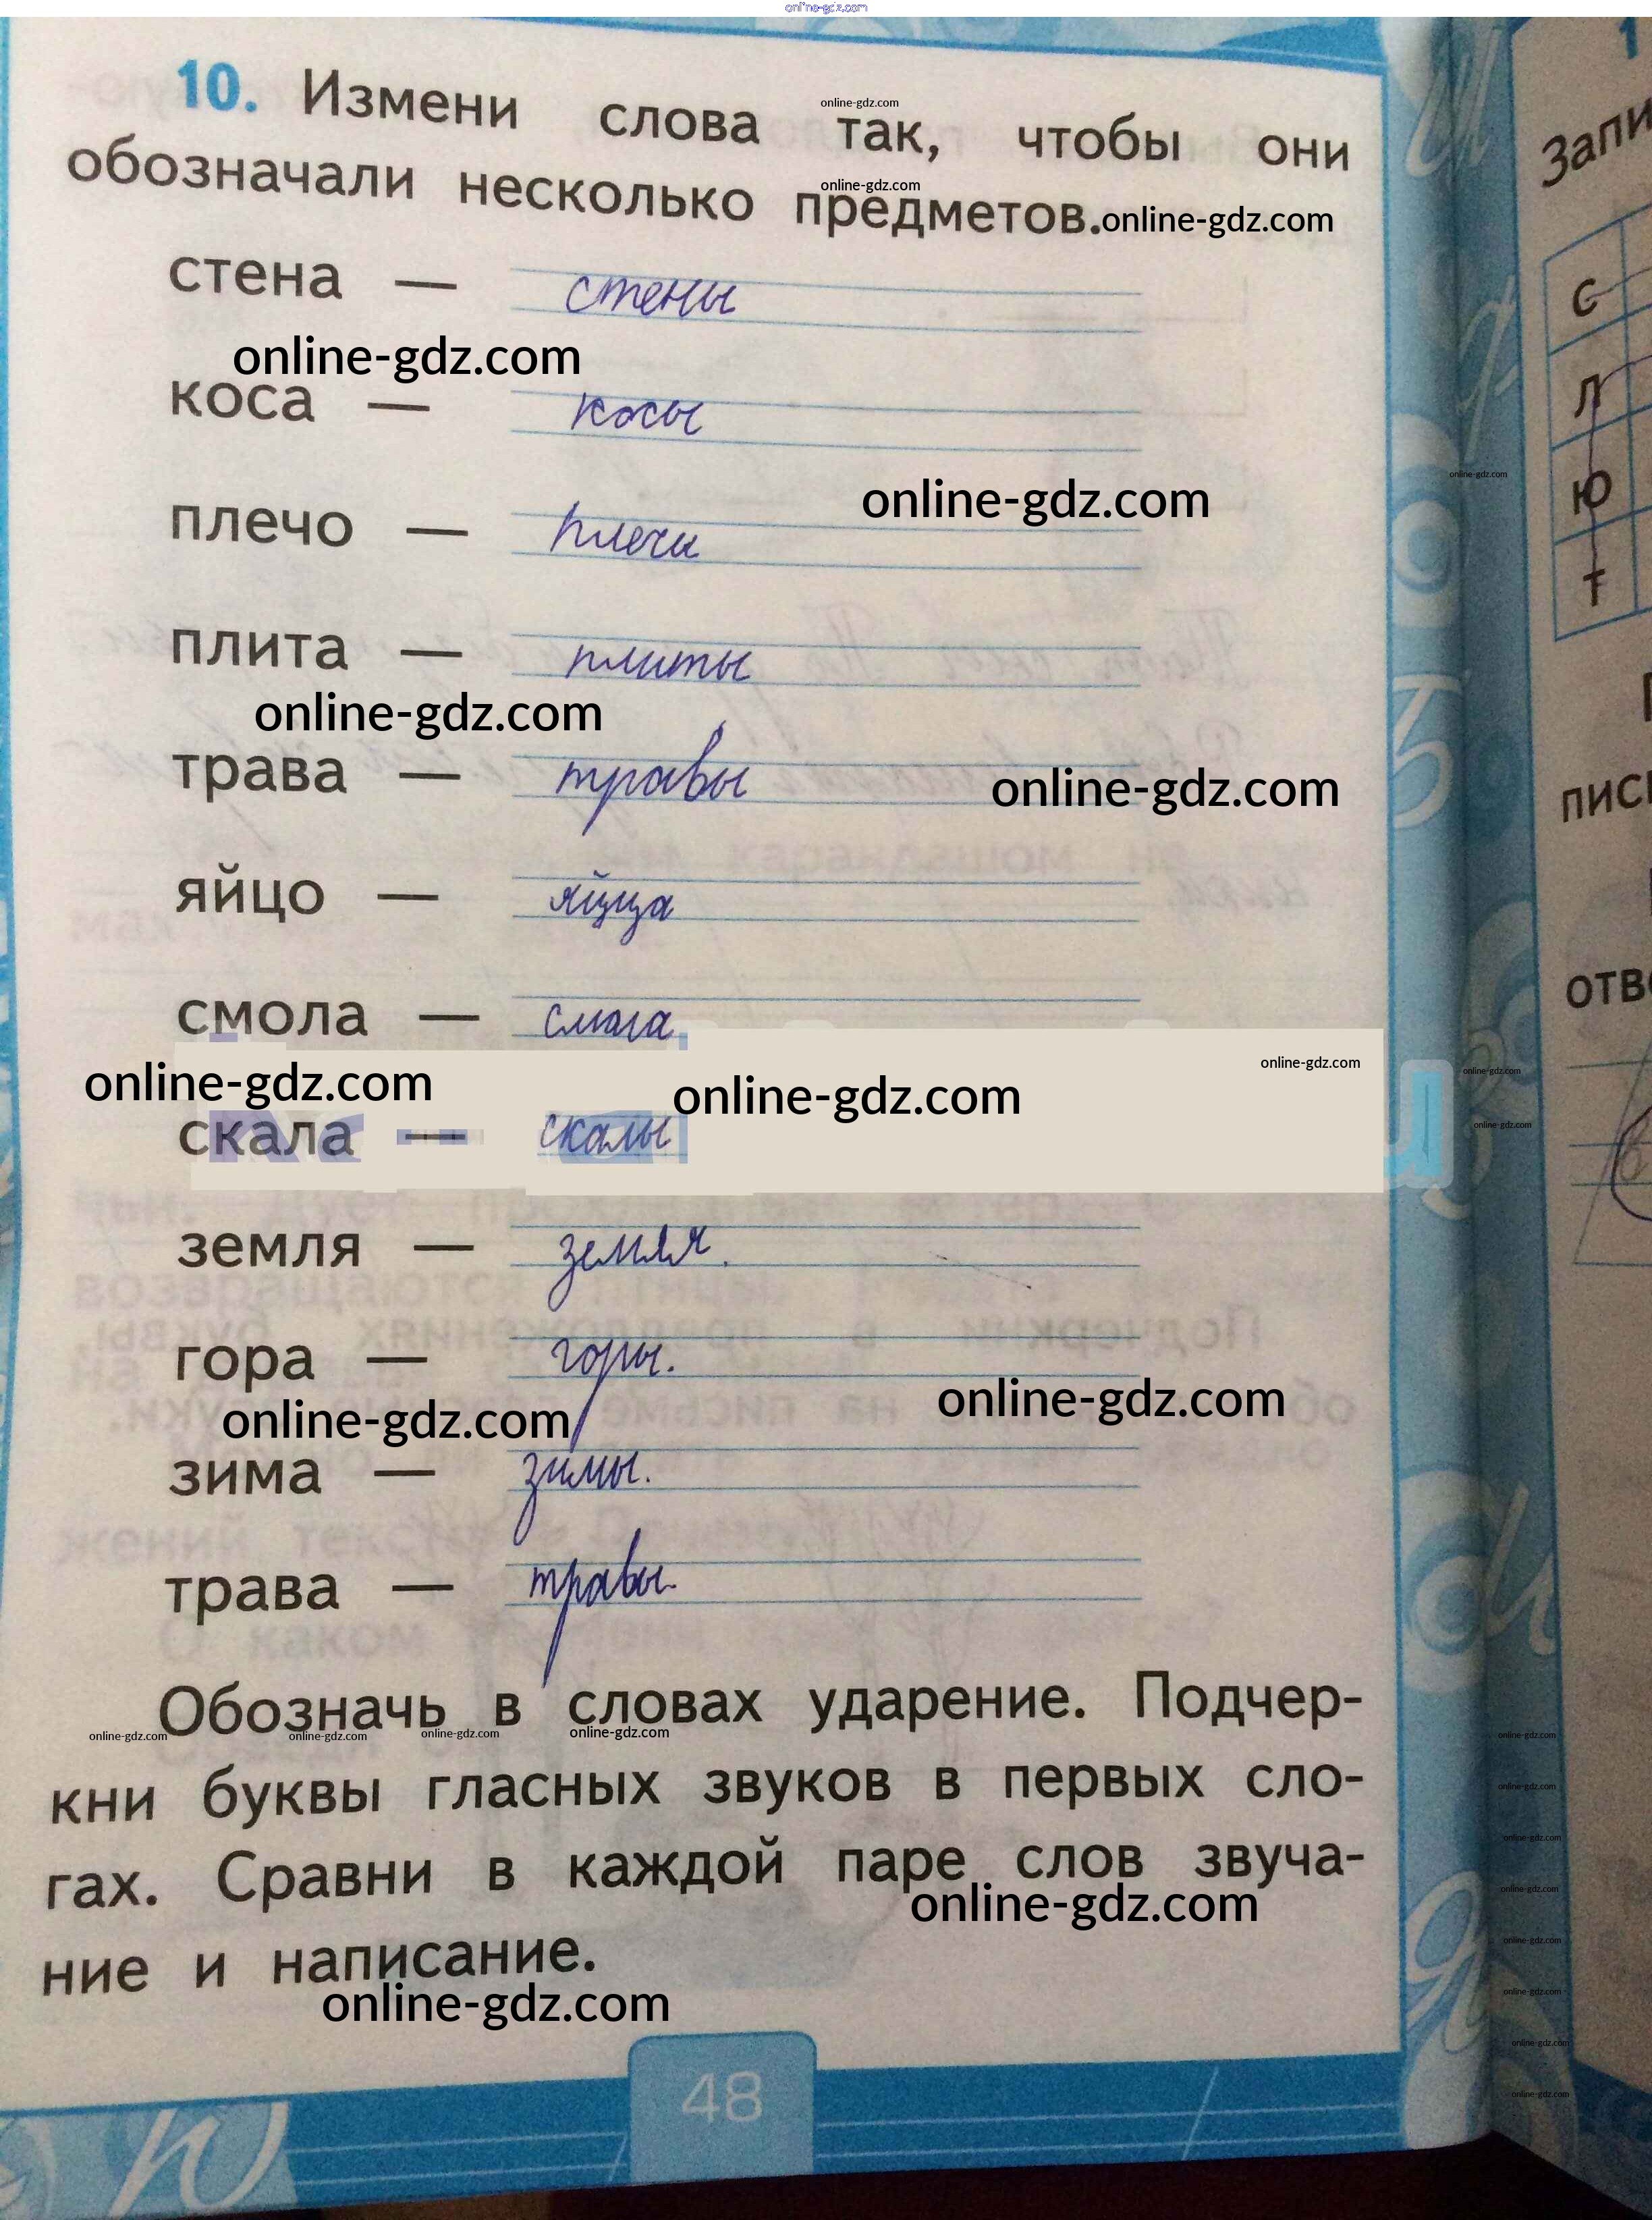 online-gdz.com
10. Измени слова так, чтобы они
online-gdz.com
обозначали несколько предметов.
online-gdz.com
online-gdz.com
стена — стены
online-gdz.com
коса — косы
online-gdz.com
online-gdz.com
плечо — плечи
плита — плиты
online-gdz.com
трава — травы
online-gdz.com
яйцо — яйца
смола — смола
online-gdz.com
online-gdz.com
online-gdz.com
online-gdz.com
скала — скалы
online-gdz.com
земля — земля.
гора — горы.
online-gdz.com
online-gdz.com
зима — зимы.
трава — травы.
Обозначь в словах ударение. Подчер-
online-gdz.com online-gdz.com online-gdz.com online-gdz.com
online-gdz.com
кни буквы гласных звуков в первых сло-
online-gdz.com
online-gdz.com
гах. Сравни в каждой паре слов звуча-
online-gdz.com
online-gdz.com
ние и написание.
online-gdz.com
online-gdz.com
online-gdz.com
online-gdz.com
online-gdz.com
48
Запи
с
л
ю
т
пис
отв